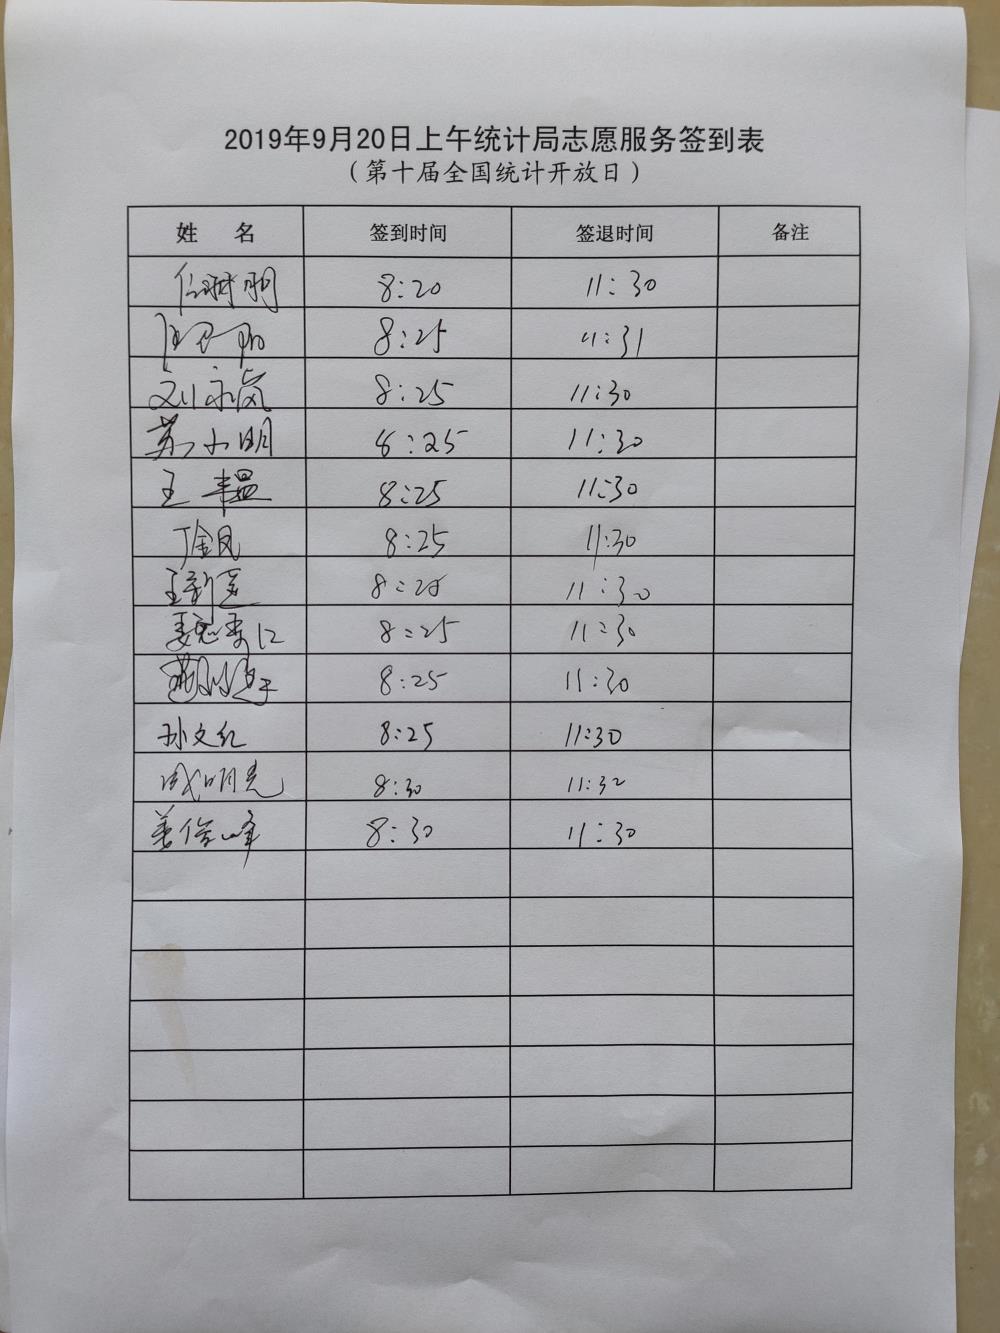 2019年9月20日上午统计局志愿服务签到表
（第十届全国统计开放日）
姓 名 签到时间 签退时间 备注
8:20 11:30
8:25 11:31
刘永岚 8:25 11:30
苏小明 8:25 11:30
王 韫 8:25 11:30
丁金凤 8:25 11:30
王新莲 8:25 11:30
8:25 11:30
8:25 11:30
孙文红 8:25 11:30
成明亮 8:30 11:32
姜俊峰 8:30 11:30